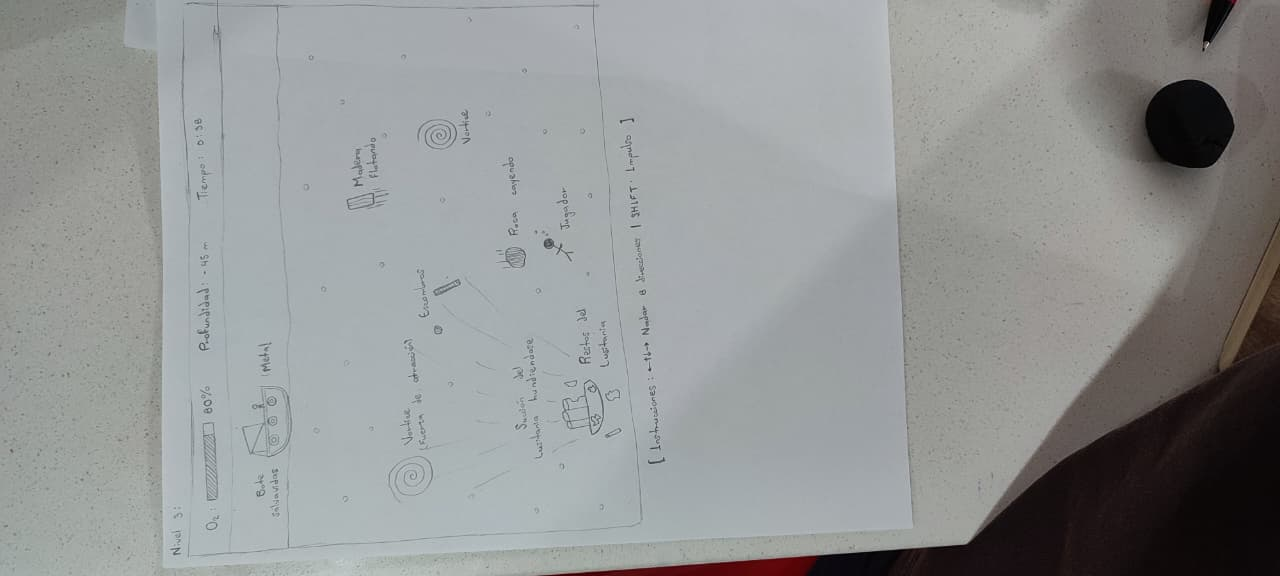 Nivel 3:
O₂: 80% Profundidad: - 45 m Tiempo: 0:38
Bote
salvavidas
(Meta)
Madera
flotando
Vórtice
(Fuerza de atracción)
Escombros
Vórtice
Roca cayendo
Succión del
Lusitania hundiendose
Jugador
Restos del
Lusitania
[ Instrucciones: ←↑↓→ Nadar 8 direcciones | SHIFT: Impulso ]